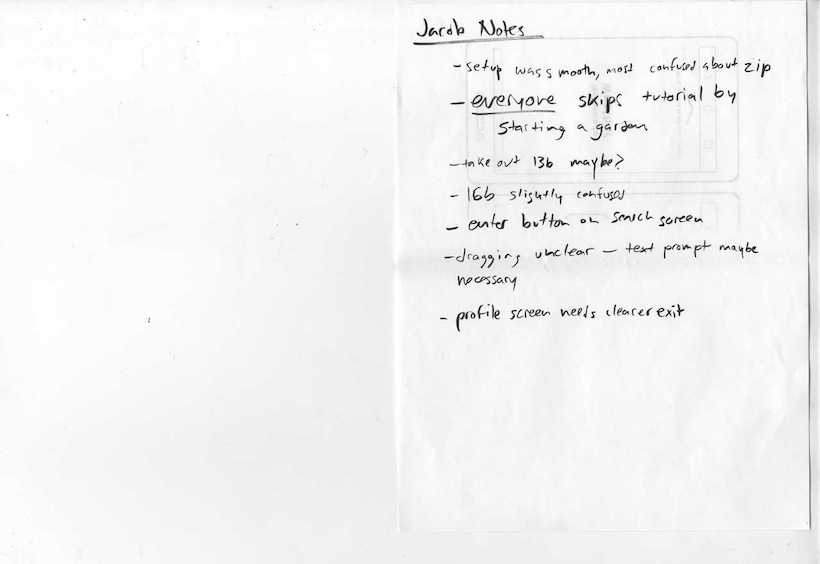 Jacob Notes
- setup was smooth, most confused about zip
- everyone skips tutorial by
starting a garden
- take out 13b maybe?
- 16b slightly confused
- enter button on search screen
- dragging unclear - text prompt maybe
necessary
- profile screen needs clearer exit